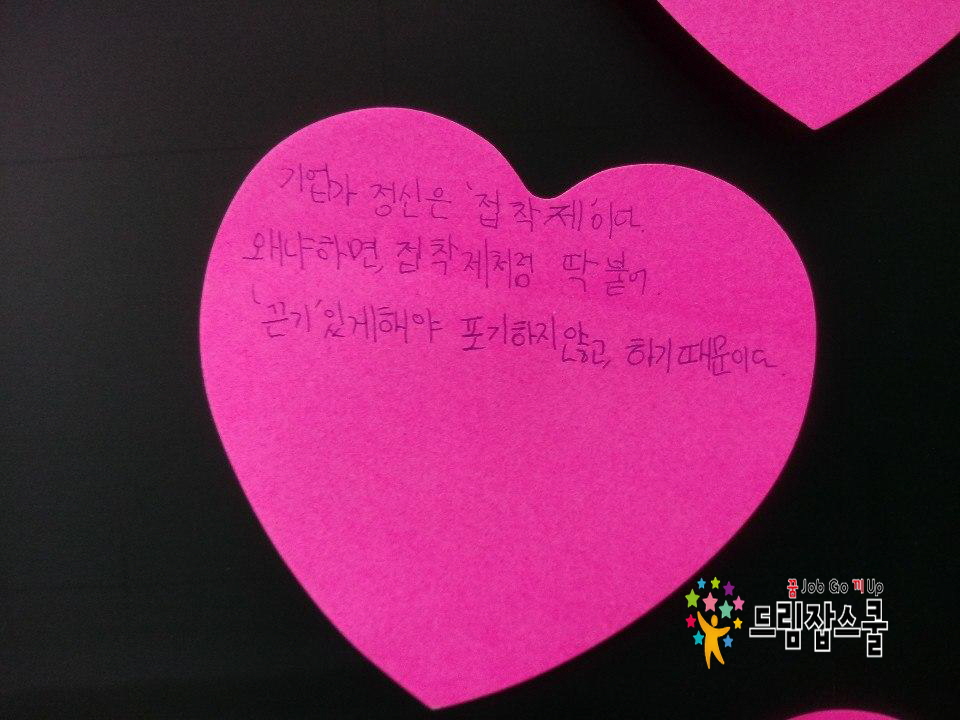 기업가 정신은 '접착제'이다.
왜냐하면, 접착제처럼 딱 붙어.
'끈기'있게해야 포기하지않고, 하기때문이다.
꿈 Job Go 끼 Up
드림잡스쿨